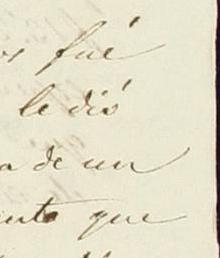 fué
le dió
a de un
ento que